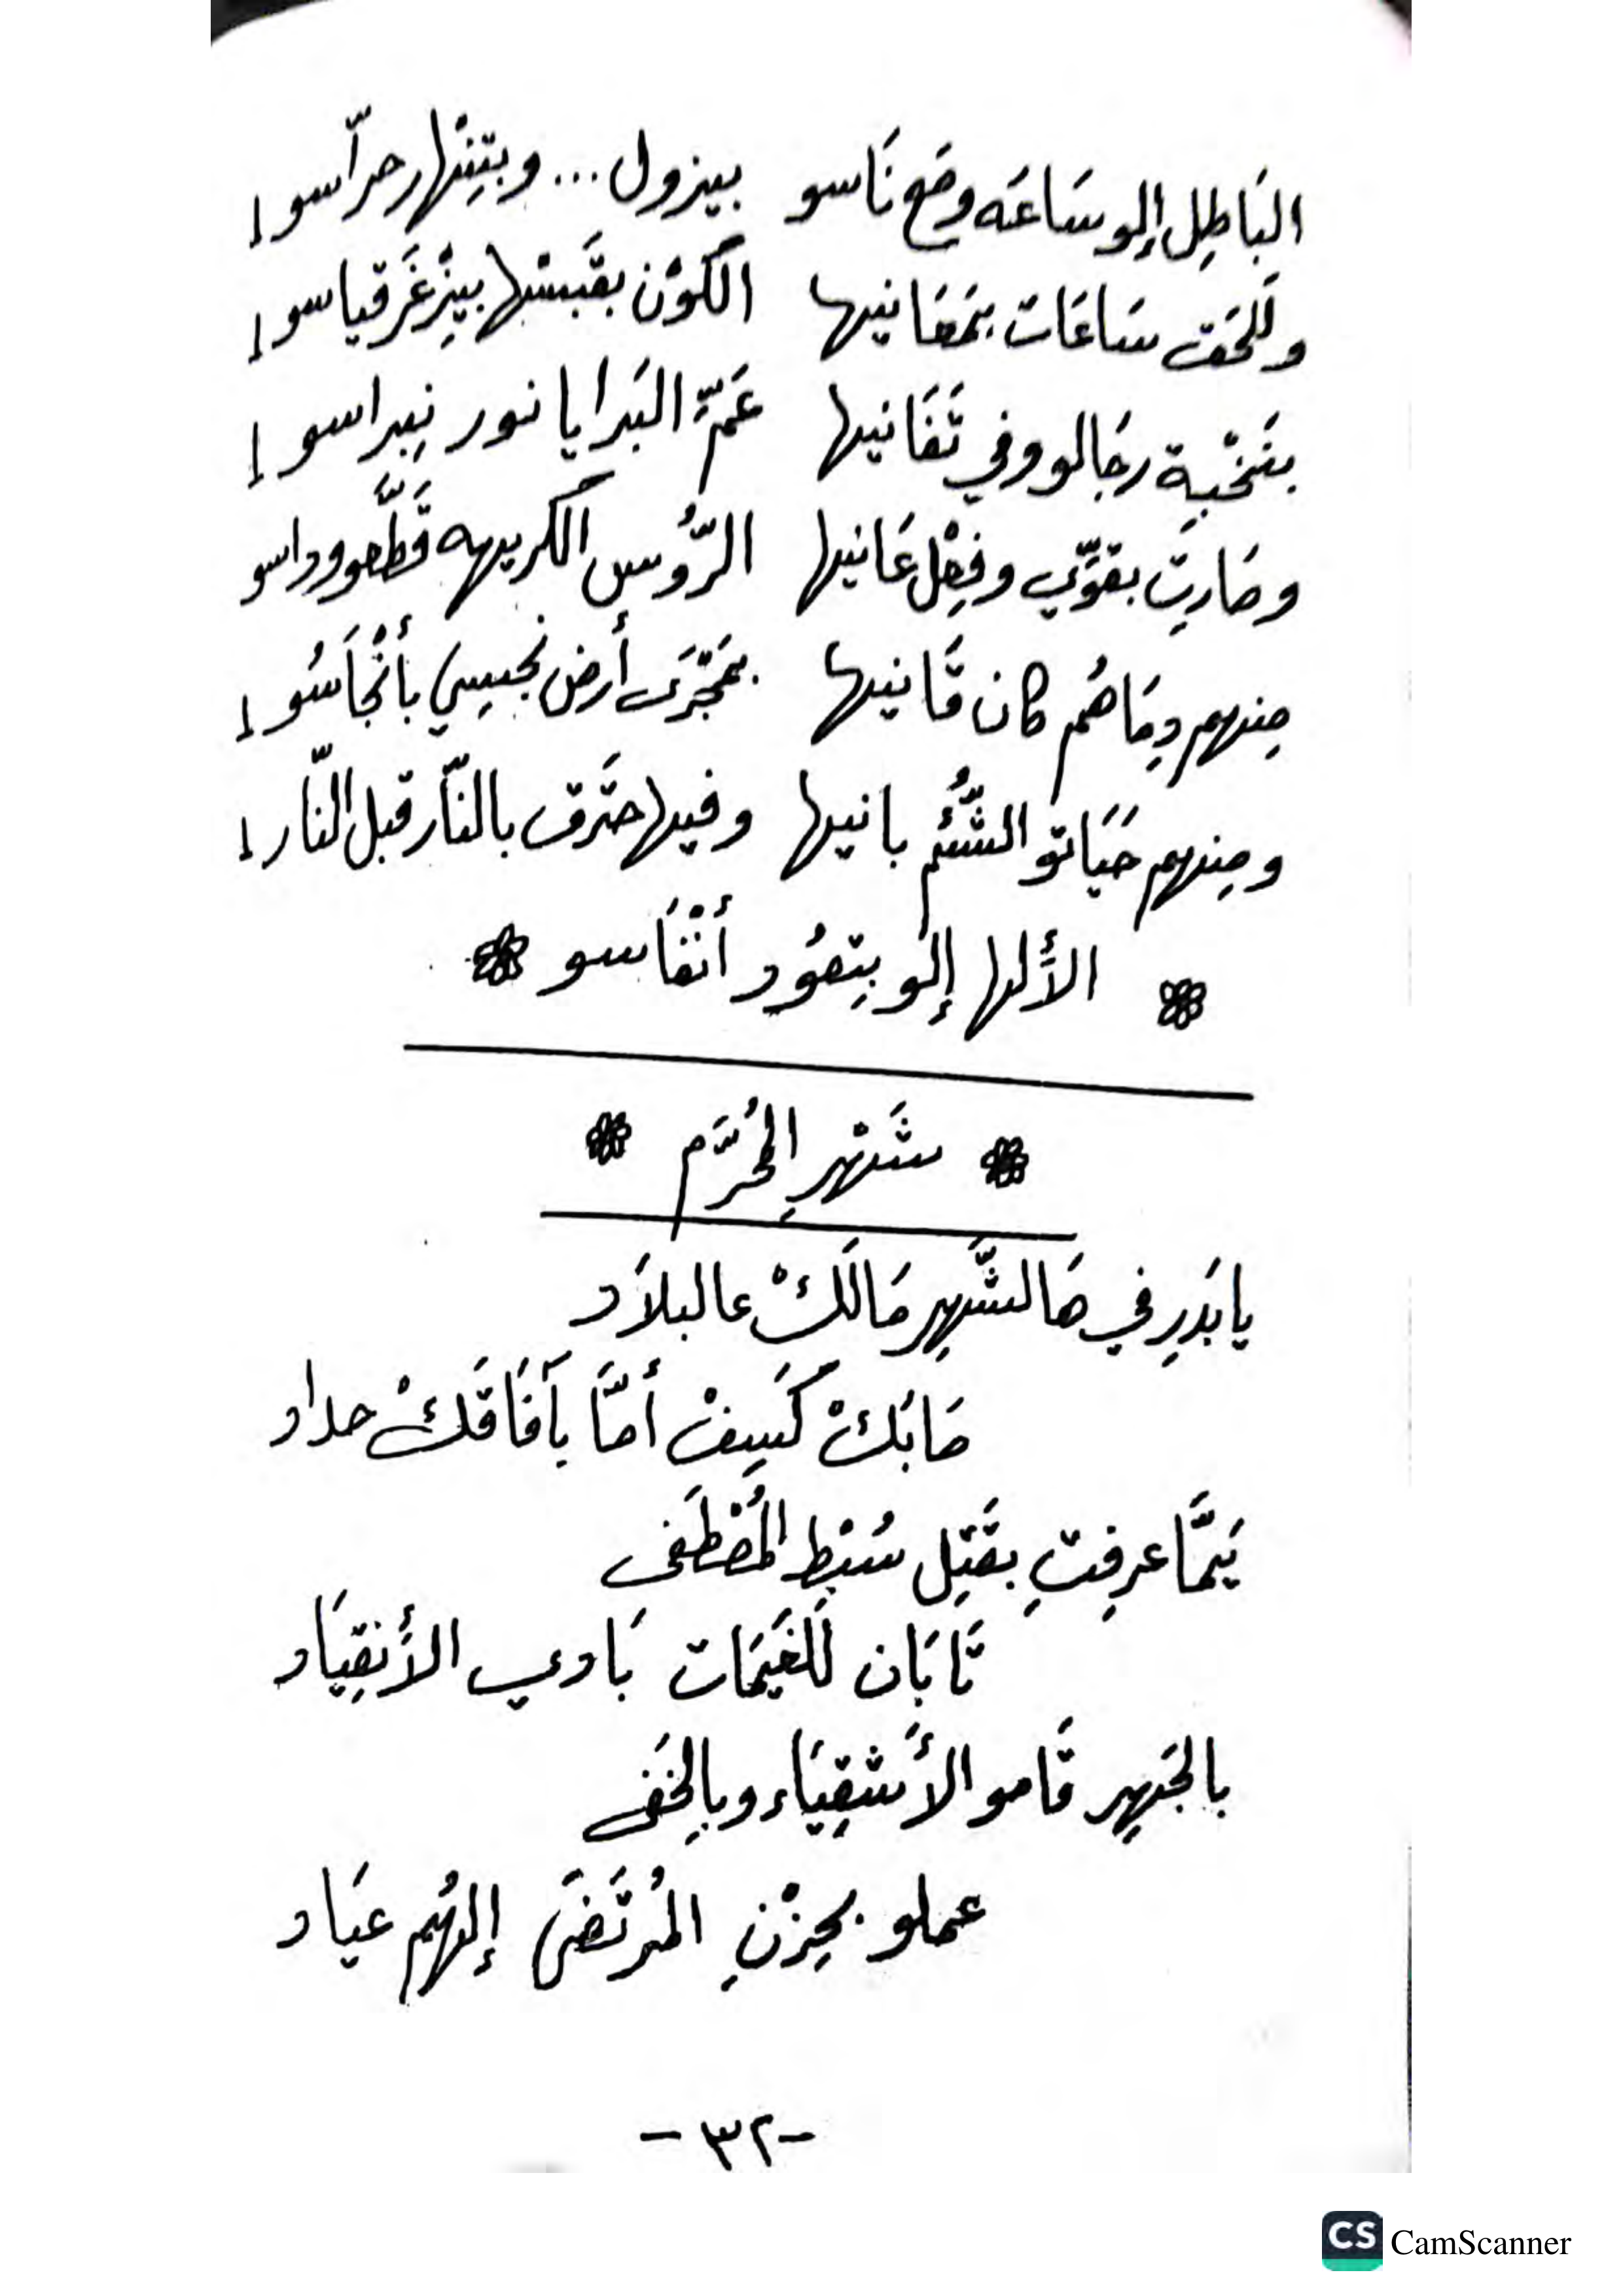 البَاطِل إلو سَاعَه وضع نَاسو بيزول ... وبتِنْهار حرّاسو !
وللحَق سَاعَات بمَعَانيها الكَوْن بقَبسْها بيِزْغَر قياسو !
بنَخْبِة رجَالو وفي تَفَانيها عَمَّ البَرايا نور نِبراسو !
وصَارِت بقوّي وفِعْل عَانيها الرُّوس الكريهه قَطَّعو وداسو
مِنهم دِمَاهُم كان قَانيها بمَجْرَى أرض نجسِي بأنْجَاسُو !
ومِنهم حَيَاتو الشُّئم بانيها وفيها حتَرق بالنّار قبل النّار !
الأَلها إلو بِتعُود أنْفَاسو
شَهْرِ المُحَرَّم
يا بَدرِ في هَالشَّهِر مَالَكْ عالبلاَد
مَا بَكْ كَسِفْ أمَّا بآفَاقَكْ حداد
يَمَّا عرِفتِ بقَتِل سُبْطِ المُصْطَفى
تَا بَان للغَيمَات بَادي الأَنقِيَاد
بالجَهِر قَامو الأَشقِيَاء وبالِخَفى
عملو بحِزْنِ المُرتَضَى إلهُم عيَاد
-٣٢-
CS CamScanner